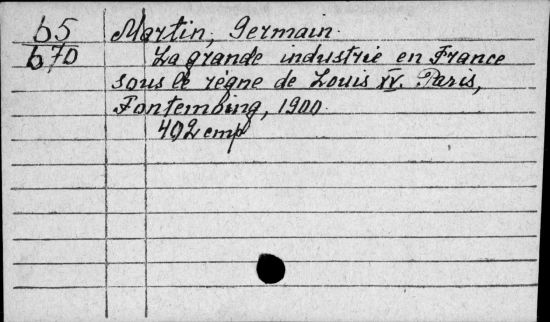 65 Martin, Germain.
670 La grande industrie en France
sous le règne de Louis XV. Paris,
Fontemoing, 1900.
402 стр